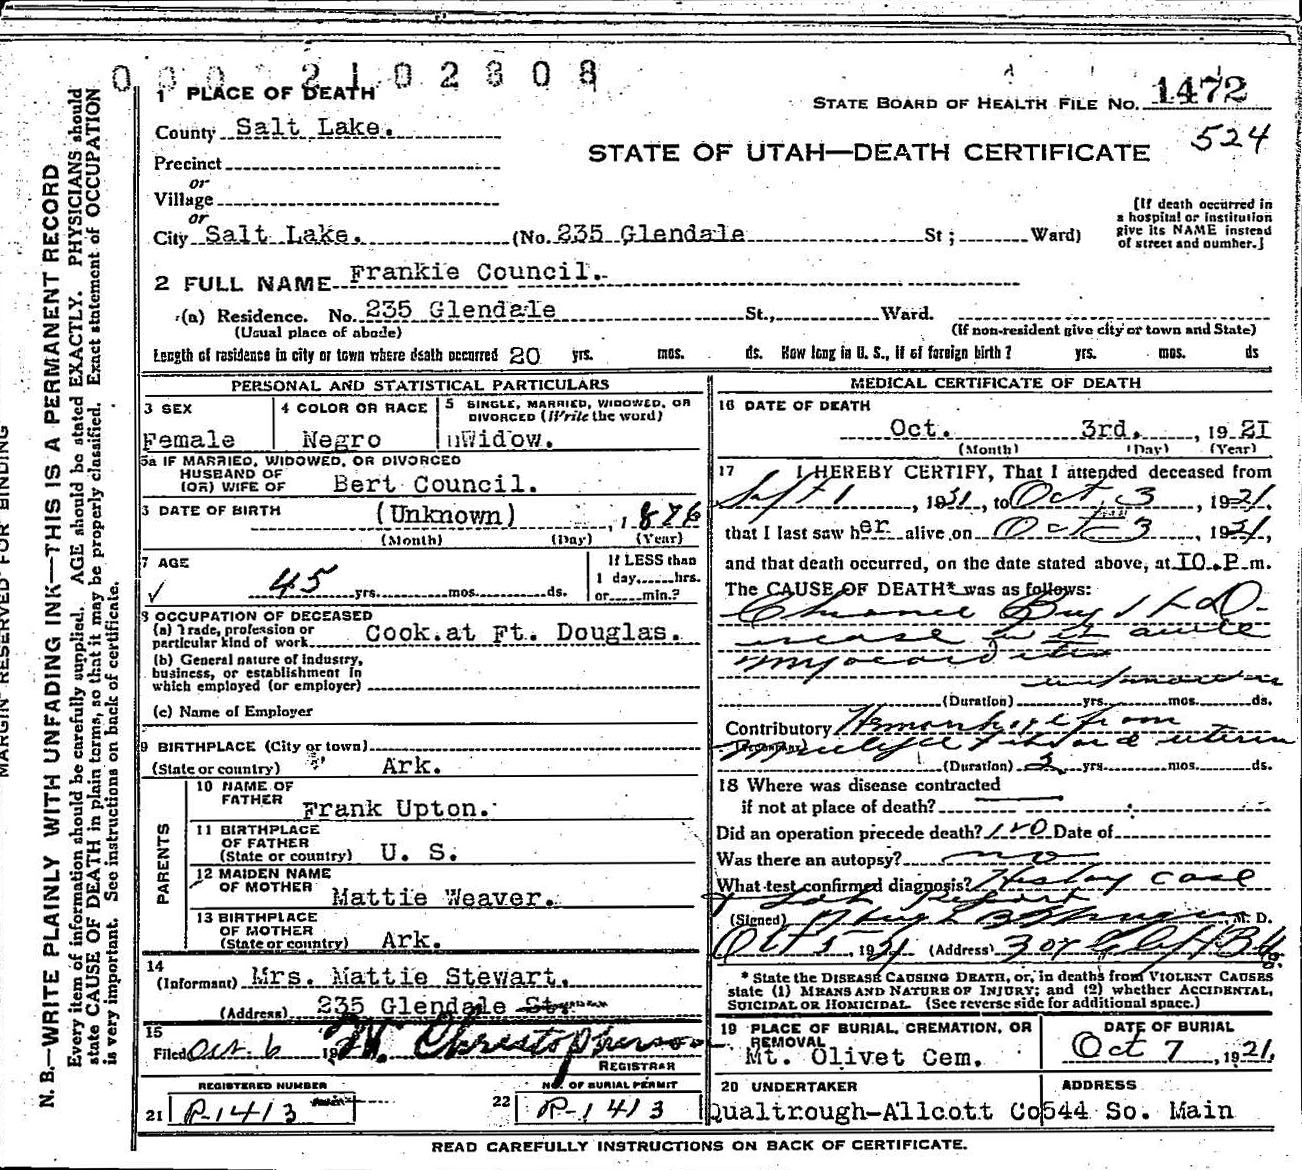 0002102808
1 PLACE OF DEATH
STATE BOARD OF HEALTH FILE NO. 1472
County Salt Lake.
524
STATE OF UTAH—DEATH CERTIFICATE
Precinct
or
Village
or
City Salt Lake. (No. 235 Glendale St; Ward)
[If death occurred in
a hospital or institution
give its NAME instead
of street and number.]
2 FULL NAME Frankie Council.
(a) Residence. No. 235 Glendale St., Ward.
(Usual place of abode) (If non-resident give city or town and State)
Length of residence in city or town where death occurred 20 yrs. mos. ds. How long in U. S., if of foreign birth? yrs. mos. ds
PERSONAL AND STATISTICAL PARTICULARS
3 SEX
Female
4 COLOR OR RACE
Negro
5 SINGLE, MARRIED, WIDOWED, OR
DIVORCED (Write the word)
Widow.
5a IF MARRIED, WIDOWED, OR DIVORCED
HUSBAND OF
(OR) WIFE OF Bert Council.
DATE OF BIRTH (Unknown) , 1876
(Month) (Day) (Year)
7 AGE
45 yrs. mos. ds.
If LESS than
1 day,......hrs.
or......min.?
8 OCCUPATION OF DECEASED
(a) Trade, profession or
particular kind of work Cook.at Ft. Douglas.
(b) General nature of industry,
business, or establishment in
which employed (or employer)
(c) Name of Employer
9 BIRTHPLACE (City or town)
(State or country) Ark.
PARENTS
10 NAME OF
FATHER Frank Upton.
11 BIRTHPLACE
OF FATHER
(State or country) U. S.
12 MAIDEN NAME
OF MOTHER Mattie Weaver.
13 BIRTHPLACE
OF MOTHER
(State or country) Ark.
14
(Informant) Mrs. Mattie Stewart.
(Address) 235 Glendale St.
15
Filed Oct. 6 19 W. Christopherson
REGISTRAR
REGISTERED NUMBER
21 P-1413
NO. OF BURIAL PERMIT
22 P-1413
MEDICAL CERTIFICATE OF DEATH
16 DATE OF DEATH
Oct. 3rd. , 1921
(Month) (Day) (Year)
17 I HEREBY CERTIFY, That I attended deceased from
Sept 1 , 1921, to Oct. 3 , 1921,
that I last saw her alive on Oct 3 , 1921,
and that death occurred, on the date stated above, at 10.P.m.
The CAUSE OF DEATH* was as follows:
acute
myocarditis
(Duration) yrs. mos. ds.
Contributory Hemorrhage from
(Duration) 2 yrs. mos. ds.
18 Where was disease contracted
if not at place of death?
Did an operation precede death? no Date of
Was there an autopsy? no
What test confirmed diagnosis? History case
& Lab Report
(Signed) , M. D.
Oct 5, 1921 (Address)
* State the DISEASE CAUSING DEATH, or, in deaths from VIOLENT CAUSES
state (1) MEANS AND NATURE OF INJURY; and (2) whether ACCIDENTAL,
SUICIDAL OR HOMICIDAL. (See reverse side for additional space.)
19 PLACE OF BURIAL, CREMATION, OR
REMOVAL
Mt. Olivet Cem.
DATE OF BURIAL
Oct 7 , 1921.
20 UNDERTAKER
Qualtrough-Allcott Co
ADDRESS
544 So. Main
READ CAREFULLY INSTRUCTIONS ON BACK OF CERTIFICATE.
MARGIN RESERVED FOR BINDING
N. B.—WRITE PLAINLY WITH UNFADING INK—THIS IS A PERMANENT RECORD
Every item of information should be carefully supplied. AGE should be stated EXACTLY. PHYSICIANS should
state CAUSE OF DEATH in plain terms, so that it may be properly classified. Exact statement of OCCUPATION
is very important. See instructions on back of certificate.